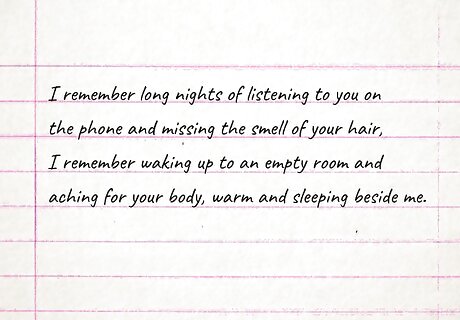 I remember long nights of listening to you on
the phone and missing the smell of your hair,
I remember waking up to an empty room and
aching for your body, warm and sleeping beside me.